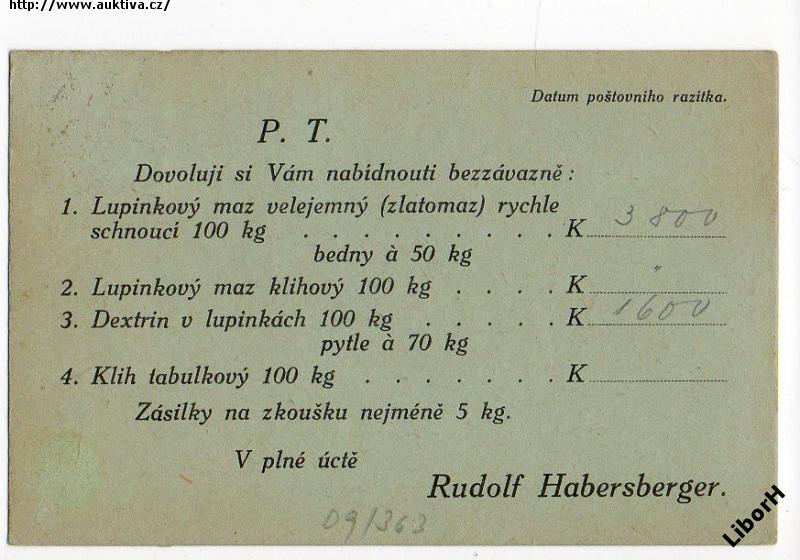 http://www.auktiva.cz/
Datum poštovního razítka.
P. T.
Dovoluji si Vám nabídnouti bezzávazně:
1. Lupinkový maz velejemný (zlatomaz) rychle
schnoucí 100 kg . . . . . . . . . K 3 800
bedny à 50 kg
2. Lupinkový maz klihový 100 kg . . . . K "
3. Dextrin v lupinkách 100 kg . . . . . K 1600
pytle à 70 kg
4. Klih tabulkový 100 kg . . . . . . . K
Zásilky na zkoušku nejméně 5 kg.
V plné úctě
Rudolf Habersberger.
09/363
LiborH